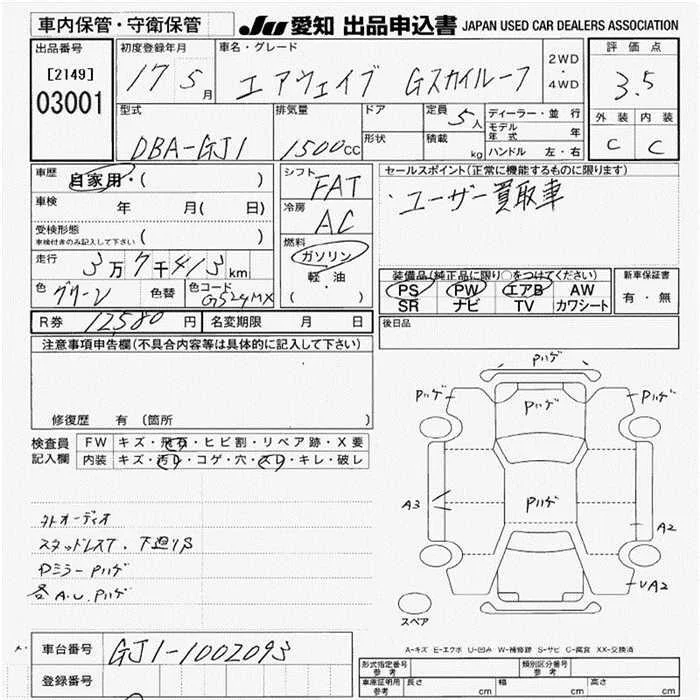 車内保管・守衛保管 JU 愛知 出品申込書 JAPAN USED CAR DEALERS ASSOCIATION
出品番号 [2149] 03001
初度登録年月 17 5月
車名・グレード エアウェイブ Gスカイルーフ
2WD・4WD
評価点 3.5
外装 C 内装 C
型式 DBA-GJ1
排気量 1500cc
ドア
形状
定員 5人
積載 kg
ディーラー・並行
モデル年式 年
ハンドル 左・右
車歴 自家用・( )
車検 年 月( 日)
受検形態 ( )
車検付きのみ記入して下さい
走行 3万7千413km
色 グリーン 色替 色コード G524MX
シフト FAT
冷房 AC
燃料 ガソリン
軽・油
( )
セールスポイント(正常に機能するものに限ります)
・ユーザー買取車
装備品(純正品に限り○をつけてください)
PS PW エアB AW
SR ナビ TV カワシート
新車保証書
有・無
R券 12580円 名変期限 月 日
後日品
注意事項申告欄(不具合内容等は具体的に記入して下さい)
修復歴 有 (箇所 )
検査員記入欄
FW キズ・飛石・ヒビ割・リペア跡・X要
内装 キズ・汚れ・コゲ・穴・スレ・キレ・破レ
外オーディオ
スタッドレスT. 下廻りS
Dミラー Pハゲ
各A.U.Pハゲ
Pハゲ
Pハゲ
Pハゲ
Pハゲ
Pハゲ
A3
A2
UA2
スペア
A-キズ E-エクボ U-凹み W-補修跡 S-サビ C-腐食 XX-交換済
車台番号 GJ1-1002093
登録番号
形式指定番号 参考
類別区分番号 参考
車庫証明用 参考 長さ cm 幅 cm 高さ cm